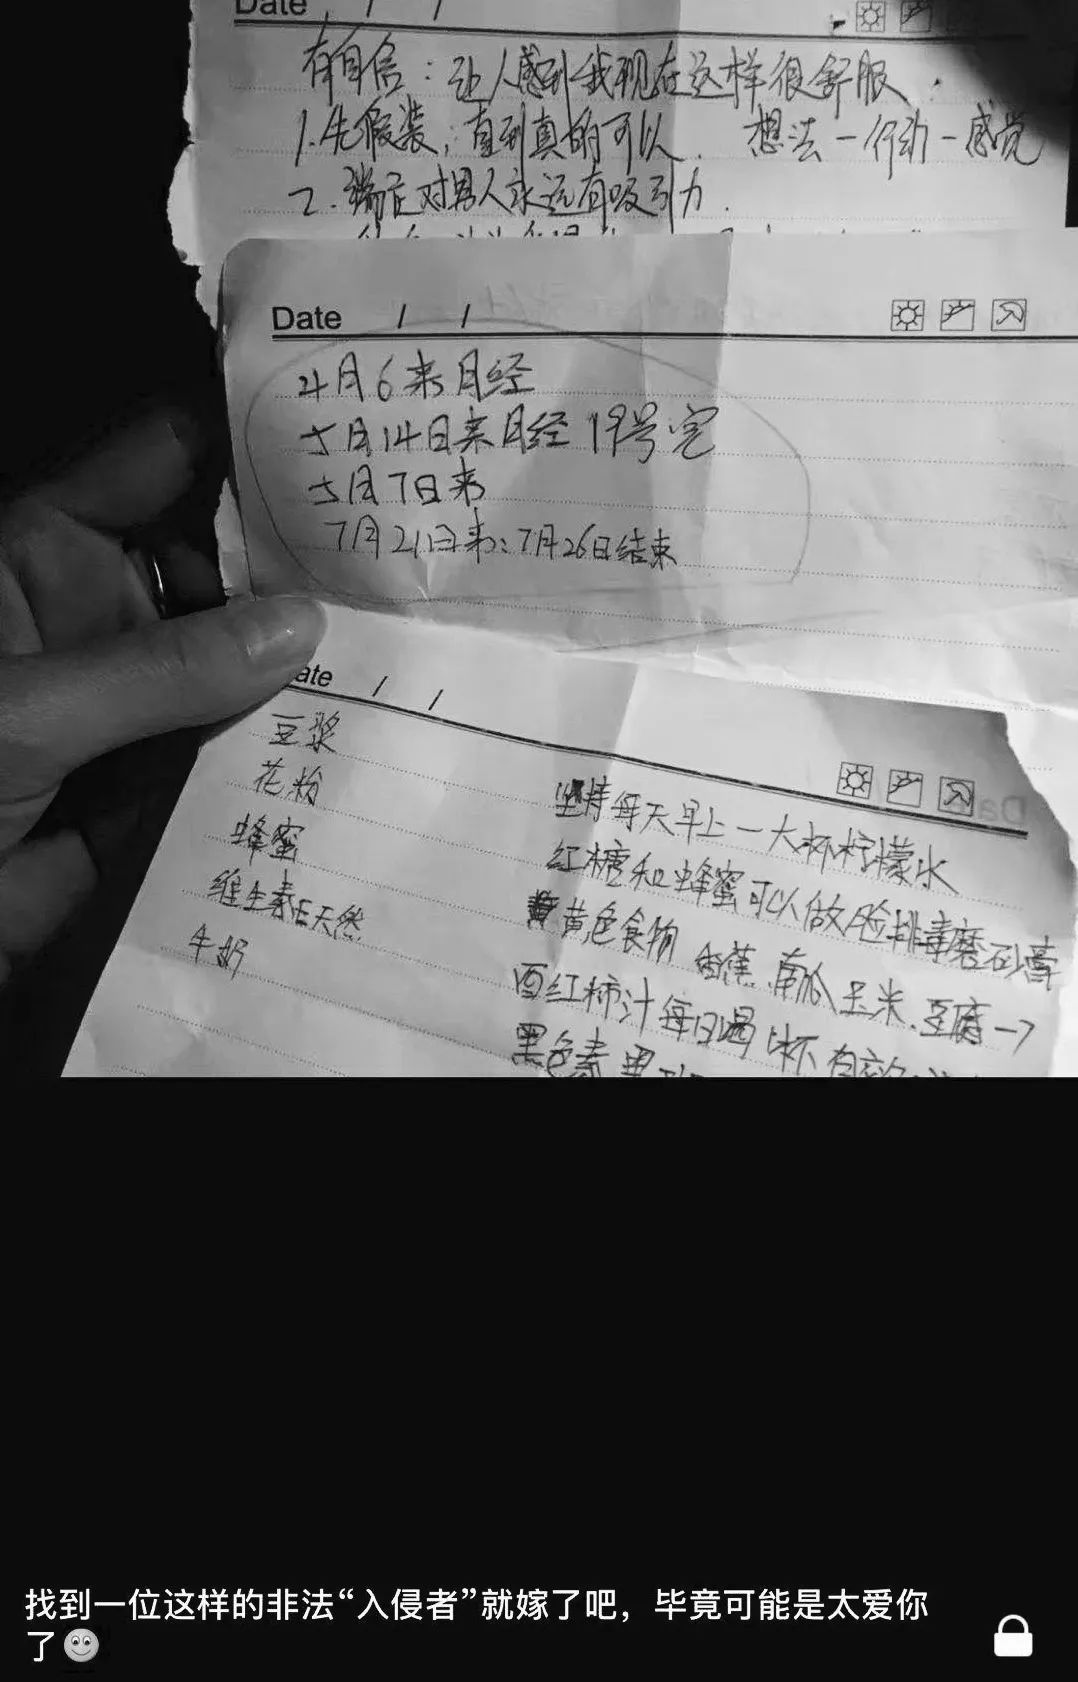 Date / /
有自信：让人感到我现在这样很舒服.
1.先假装,直到真的可以. 想法一行动一感觉
2.端正对男人永远有吸引力.
Date / /
4月6来月经
5月14日来月经 19号完
5月7日来
7月21日来：7月26日结束
ate / /
豆浆
花粉
蜂蜜
维生素E天然
牛奶
坚持每天早上一大杯柠檬水
红糖和蜂蜜可以做脸排毒磨砂膏
黄色食物 香蕉.南瓜.玉米.豆腐一
西红柿汁每日喝1杯 有
黑色素
找到一位这样的非法“入侵者”就嫁了吧，毕竟可能是太爱你
了